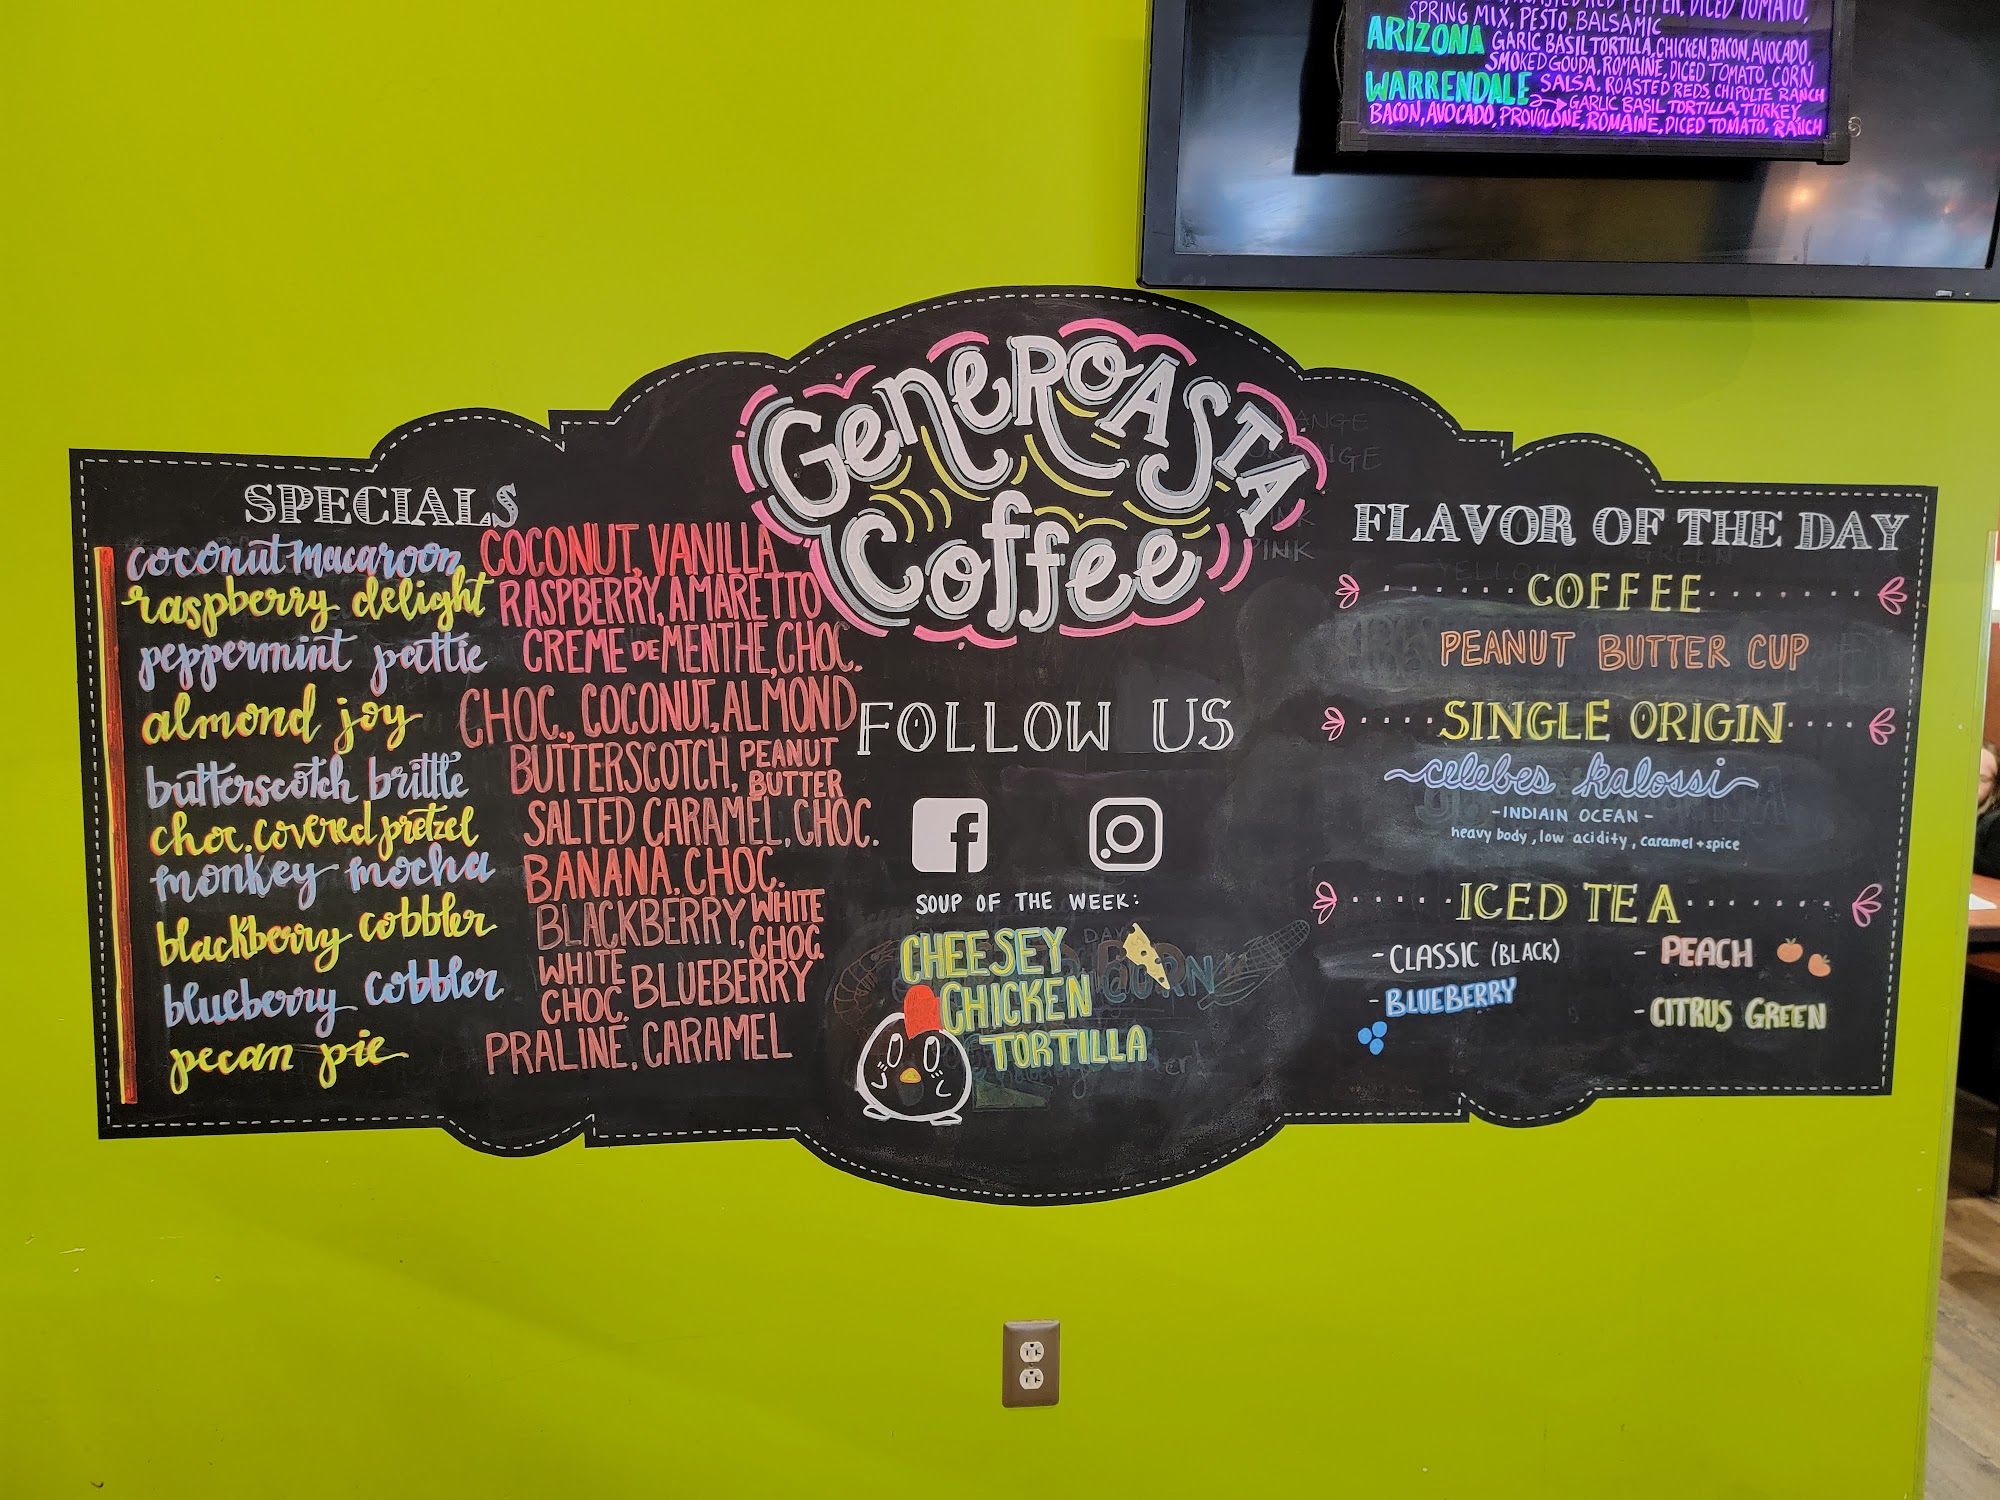 SPRING MIX, PESTO, BALSAMIC
ARIZONA GARIC BASIL TORTILLA, CHICKEN, BACON, AVOCADO,
SMOKED GOUDA, ROMAINE, DICED TOMATO, CORN
WARRENDALE SALSA, ROASTED REDS, CHIPOLTE RANCH
GARLIC BASIL TORTILLA, TURKEY,
BACON, AVOCADO, PROVOLONE, ROMAINE, DICED TOMATO, RANCH
GeneROASTA
Coffee
SPECIALS
coconut macaroon COCONUT, VANILLA
raspberry delight RASPBERRY, AMARETTO
peppermint pattie CREME DE MENTHE, CHOC.
almond joy CHOC., COCONUT, ALMOND
butterscotch brittle BUTTERSCOTCH, PEANUT BUTTER
choc. covered pretzel SALTED CARAMEL, CHOC.
monkey mocha BANANA, CHOC.
blackberry cobbler BLACKBERRY, WHITE CHOC.
blueberry cobbler WHITE CHOC. BLUEBERRY
pecan pie PRALINE, CARAMEL
FOLLOW US
SOUP OF THE WEEK:
CHEESEY
CHICKEN
TORTILLA
FLAVOR OF THE DAY
COFFEE
PEANUT BUTTER CUP
SINGLE ORIGIN
celebes kalossi
- INDIAIN OCEAN -
heavy body, low acidity, caramel + spice
ICED TEA
- CLASSIC (BLACK)
- PEACH
- BLUEBERRY
- CITRUS GREEN